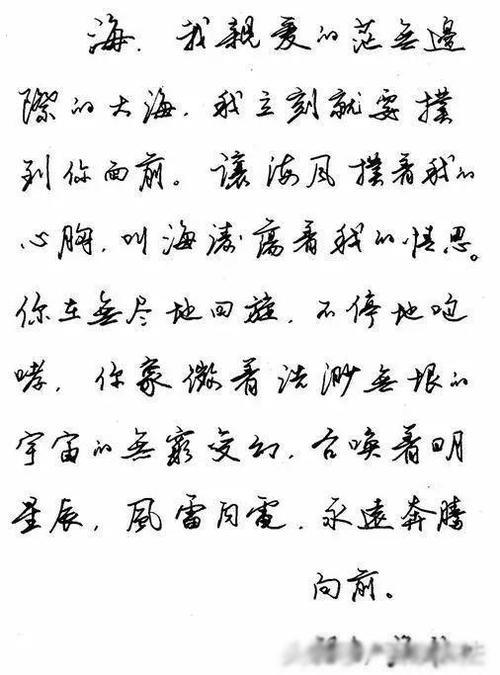 海，我親爱的茫無邊
際的大海，我立刻就要撲
到你面前。讓海风撲着我的
心胸，叫海濤蕩着我的情思。
你在無尽地回旋，不停地咆
哮，你象徵着浩渺無垠的
宇宙的無窮变幻，召唤着明
星辰，風雷闪電，永遠奔腾
向前。